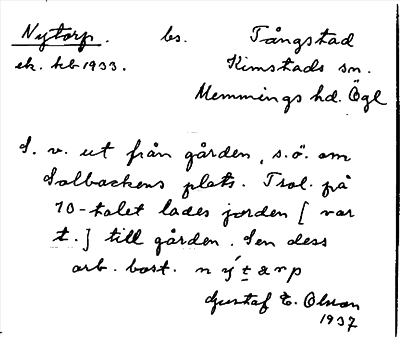 Nytorp. bs. Tångstad
ek. kb 1933. Kimstads sn.
Memmings hd. Ögl
S. v. ut från gården, s.ö. om
Solbackens plats. Trol. på
70-talet lades jorden [var
t.] till gården. Sen dess
arb. bost. n ý t a r p
Gustaf E. Olsson
1937